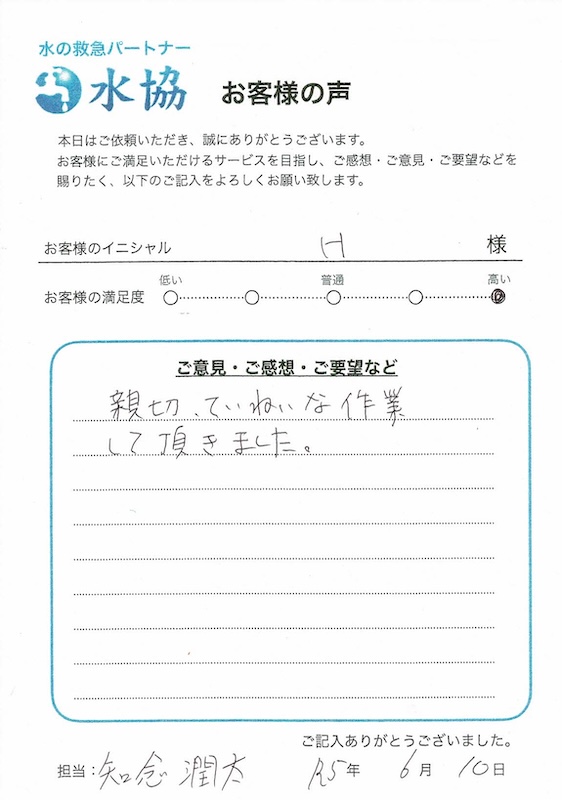 水の救急パートナー
水協 お客様の声
本日はご依頼いただき、誠にありがとうございます。
お客様にご満足いただけるサービスを目指し、ご感想・ご意見・ご要望などを
賜りたく、以下のご記入をよろしくお願い致します。
お客様のイニシャル H 様
低い 普通 高い
お客様の満足度
ご意見・ご感想・ご要望など
親切、ていねいな作業
して頂きました。
ご記入ありがとうございました。
担当：知念 潤太 R5年 6月 10日